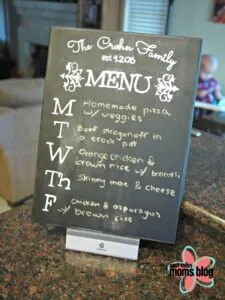 The Crohn Family
est. 4.2.06
MENU
M Homemade pizza
w/ veggies
T Beef stroganoff in
a crock pot
W Orange chicken &
brown rice w/ brocolli
Th Skinny mac & cheese
F chicken & asparagus
w/ brown rice
moms blog